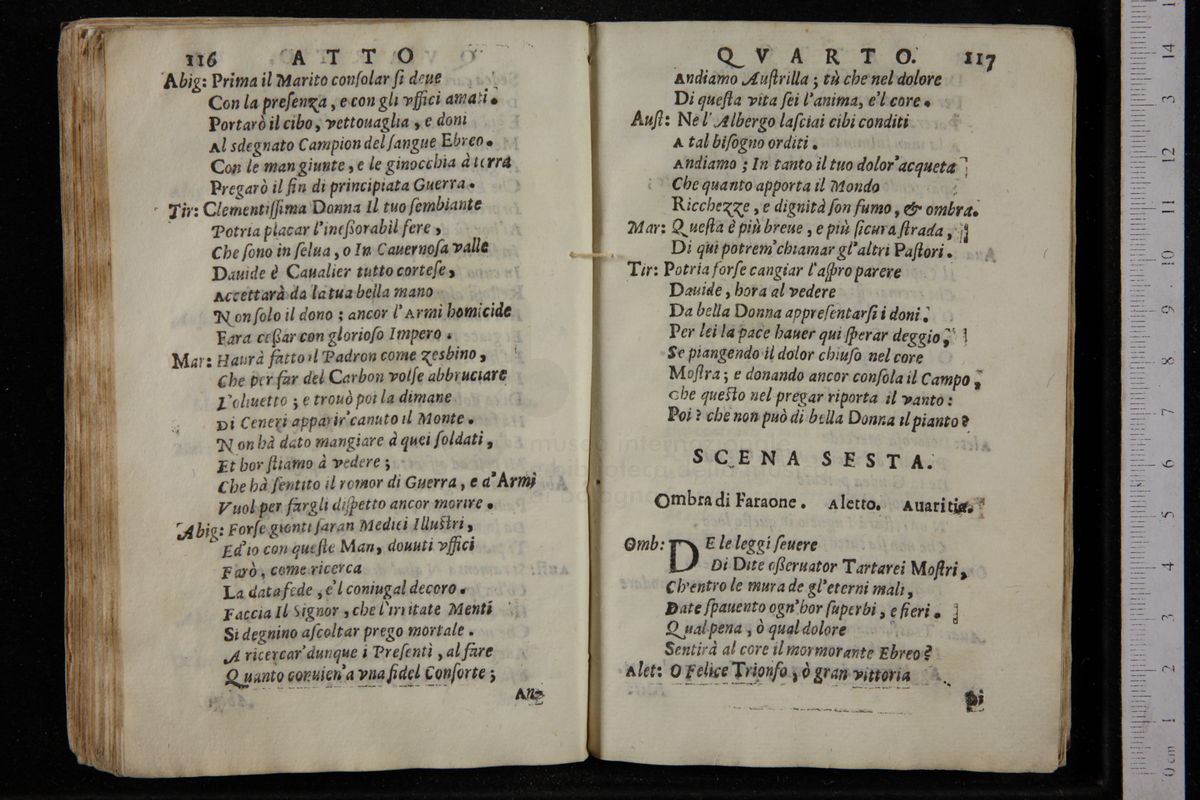 116 ATTO
Abig: Prima il Marito conſolar ſi deue
Con la preſenza, e con gli vffici amati.
Portarò il cibo, vettouaglia, e doni
Al sdegnato Campion del ſangue Ebreo.
Con le man giunte, e le ginocchia à terra
Pregarò il fin di principiata Guerra.
Tir: Clementiſſima Donna Il tuo ſembiante
Potria placar l'ineßorabil fere,
Che ſono in ſelua, o In Cauernoſa valle
Dauide è Caualier tutto corteſe,
Accettarà da la tua bella mano
Non ſolo il dono; ancor l'Armi homicide
Fara ceßar con glorioſo Impero.
Mar: Haurà fatto il Padron come Zesbino,
Che per far del Carbon volſe abbruciare
L'oliuetto; e trouò poi la dimane
Di Ceneri apparir' canuto il Monte.
Non hà dato mangiare à quei ſoldati,
Et hor ſtiamo à vedere;
Che hà ſentito il romor di Guerra, e d'Armi
Vuol per fargli diſpetto ancor morire.
Abig: Forſe gionti ſaran Medici Illuſtri,
Ed'io con queſte Man, douuti vffici
Farò, come ricerca
La data fede, e'l coniugal decoro.
Faccia Il Signor, che l'irritate Menti
Si degnino aſcoltar prego mortale.
A ricercar' dunque i Preſenti, al fare
Quanto conuien'a vna fidel Conſorte;
An-
QVARTO. 117
Andiamo Auſtrilla; tù che nel dolore
Di queſta vita ſei l'anima, e'l core.
Auſt: Ne l'Albergo laſciai cibi conditi
A tal biſogno orditi.
Andiamo; In tanto il tuo dolor'acqueta
Che quanto apporta il Mondo
Ricchezze, e dignità ſon fumo, & ombra.
Mar: Queſta è più breue, e più ſicura ſtrada,
Di qui potrem'chiamar gl'altri Paſtori.
Tir: Potria forſe cangiar l'aſpro parere
Dauide, hora al vedere
Da bella Donna appreſentarſi i doni.
Per lei la pace hauer qui ſperar deggio,
Se piangendo il dolor chiuſo nel core
Moſtra; e donando ancor conſola il Campo,
Che queſto nel pregar riporta il vanto:
Poi? che non può di bella Donna il pianto?
SCENA SESTA.
Ombra di Faraone. Aletto. Auaritia.
Omb: DE le leggi ſeuere
Di Dite oßeruator Tartarei Moſtri,
Ch'entro le mura de gl'eterni mali,
Date ſpauento ogn'hor ſuperbi, e fieri.
Qual pena, ò qual dolore
Sentirà al core il mormorante Ebreo?
Alet: O Felice Trionfo, ò gran vittoria
Di